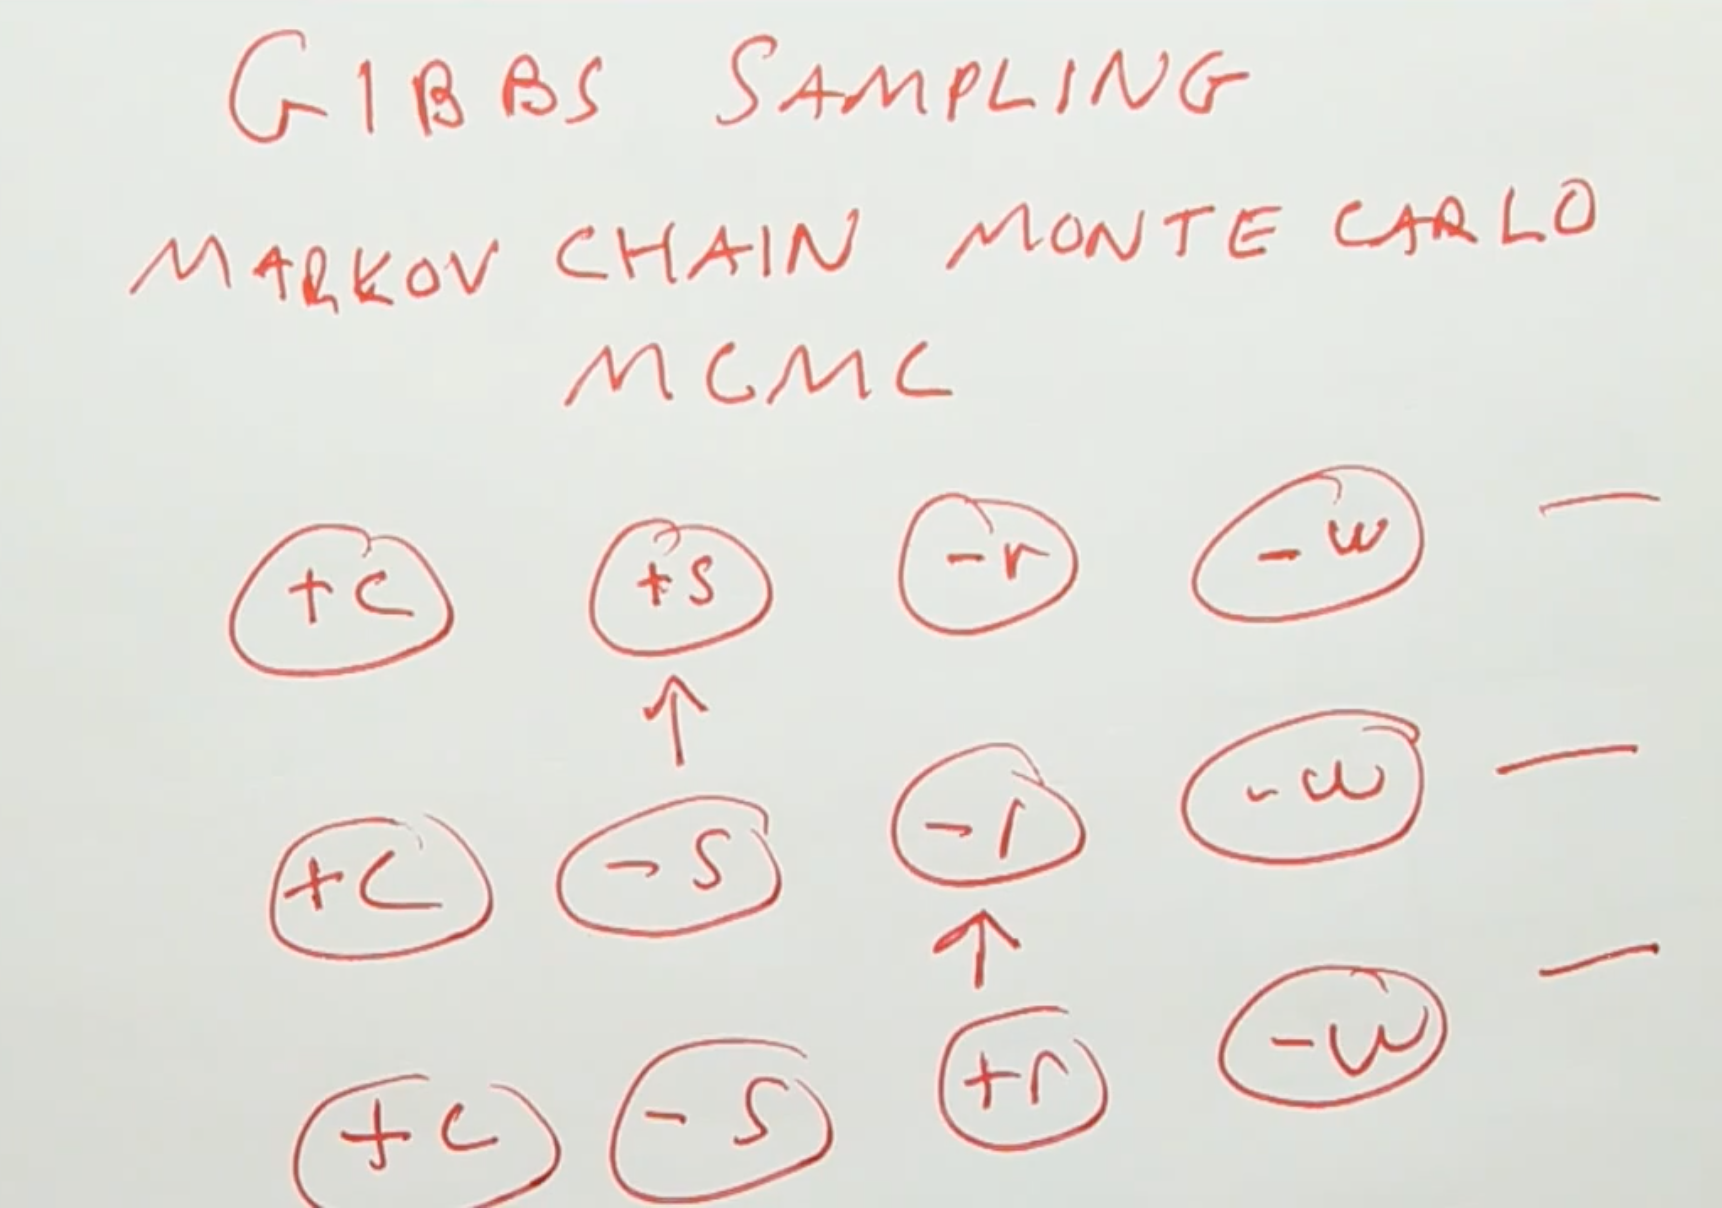 GIBBS SAMPLING
MARKOV CHAIN MONTE CARLO
MCMC
+c +s -r -w —
+c -s -r -w —
+c -s +r -w —